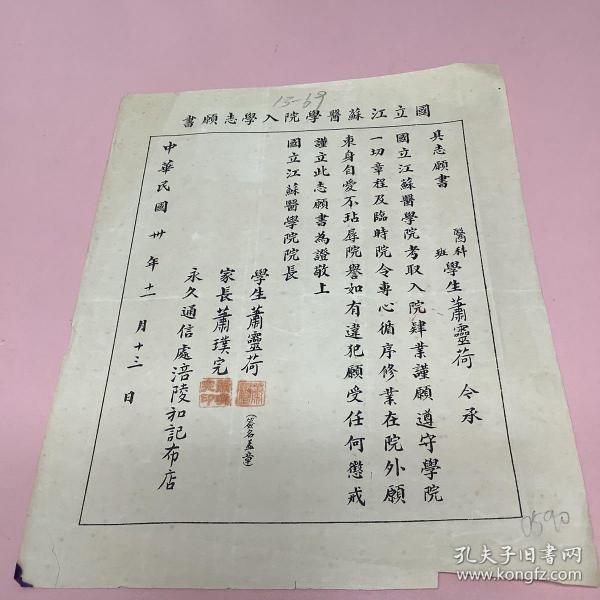 15-69
國立江蘇醫學院入學志願書
具志願書 醫科班 學生蕭靈荷 今承
國立江蘇醫學院考取入院肄業謹願遵守學院
一切章程及臨時院令專心循序修業在院外願
束身自愛不玷辱院譽如有違犯願受任何懲戒
謹立此志願書為證敬上
國立江蘇醫學院院長
學生蕭靈荷 (簽名蓋章)
家長蕭璞完
永久通信處涪陵和記布店
中華民國卅年十一月十三日
0590
孔夫子旧书网
www.kongfz.com